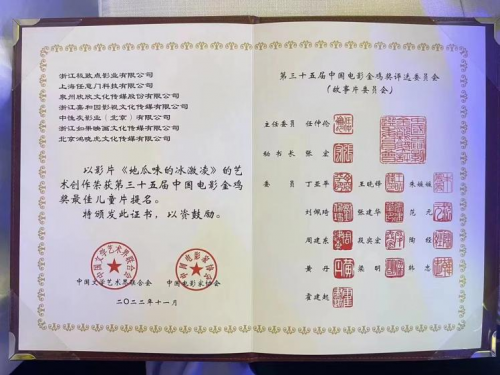 浙江极致点影业有限公司
上海任意门科技有限公司
泉州欣欣文化传媒股份有限公司
浙江嘉和国影视文化传媒有限公司
中恒永影业（北京）有限公司
浙江如果映画文化传媒有限公司
北京鸿晓光文化传媒有限公司
以影片《地瓜味的冰激凌》的艺
术创作荣获第三十五届中国电影金鸡
奖最佳儿童片提名。
特颁发此证书，以资鼓励。
中国文学艺术界联合会 中国电影家协会
二〇二二年十一月
第三十五届中国电影金鸡奖评选委员会
（故事片委员会）
主任委员 任仲伦
秘书长 张宏
委员 丁荫平 王晓锋 朱媛媛
刘佩琦 张建华 范元
周建东 段奕宏 陶经
黄丹 梁明 韩志
霍建起